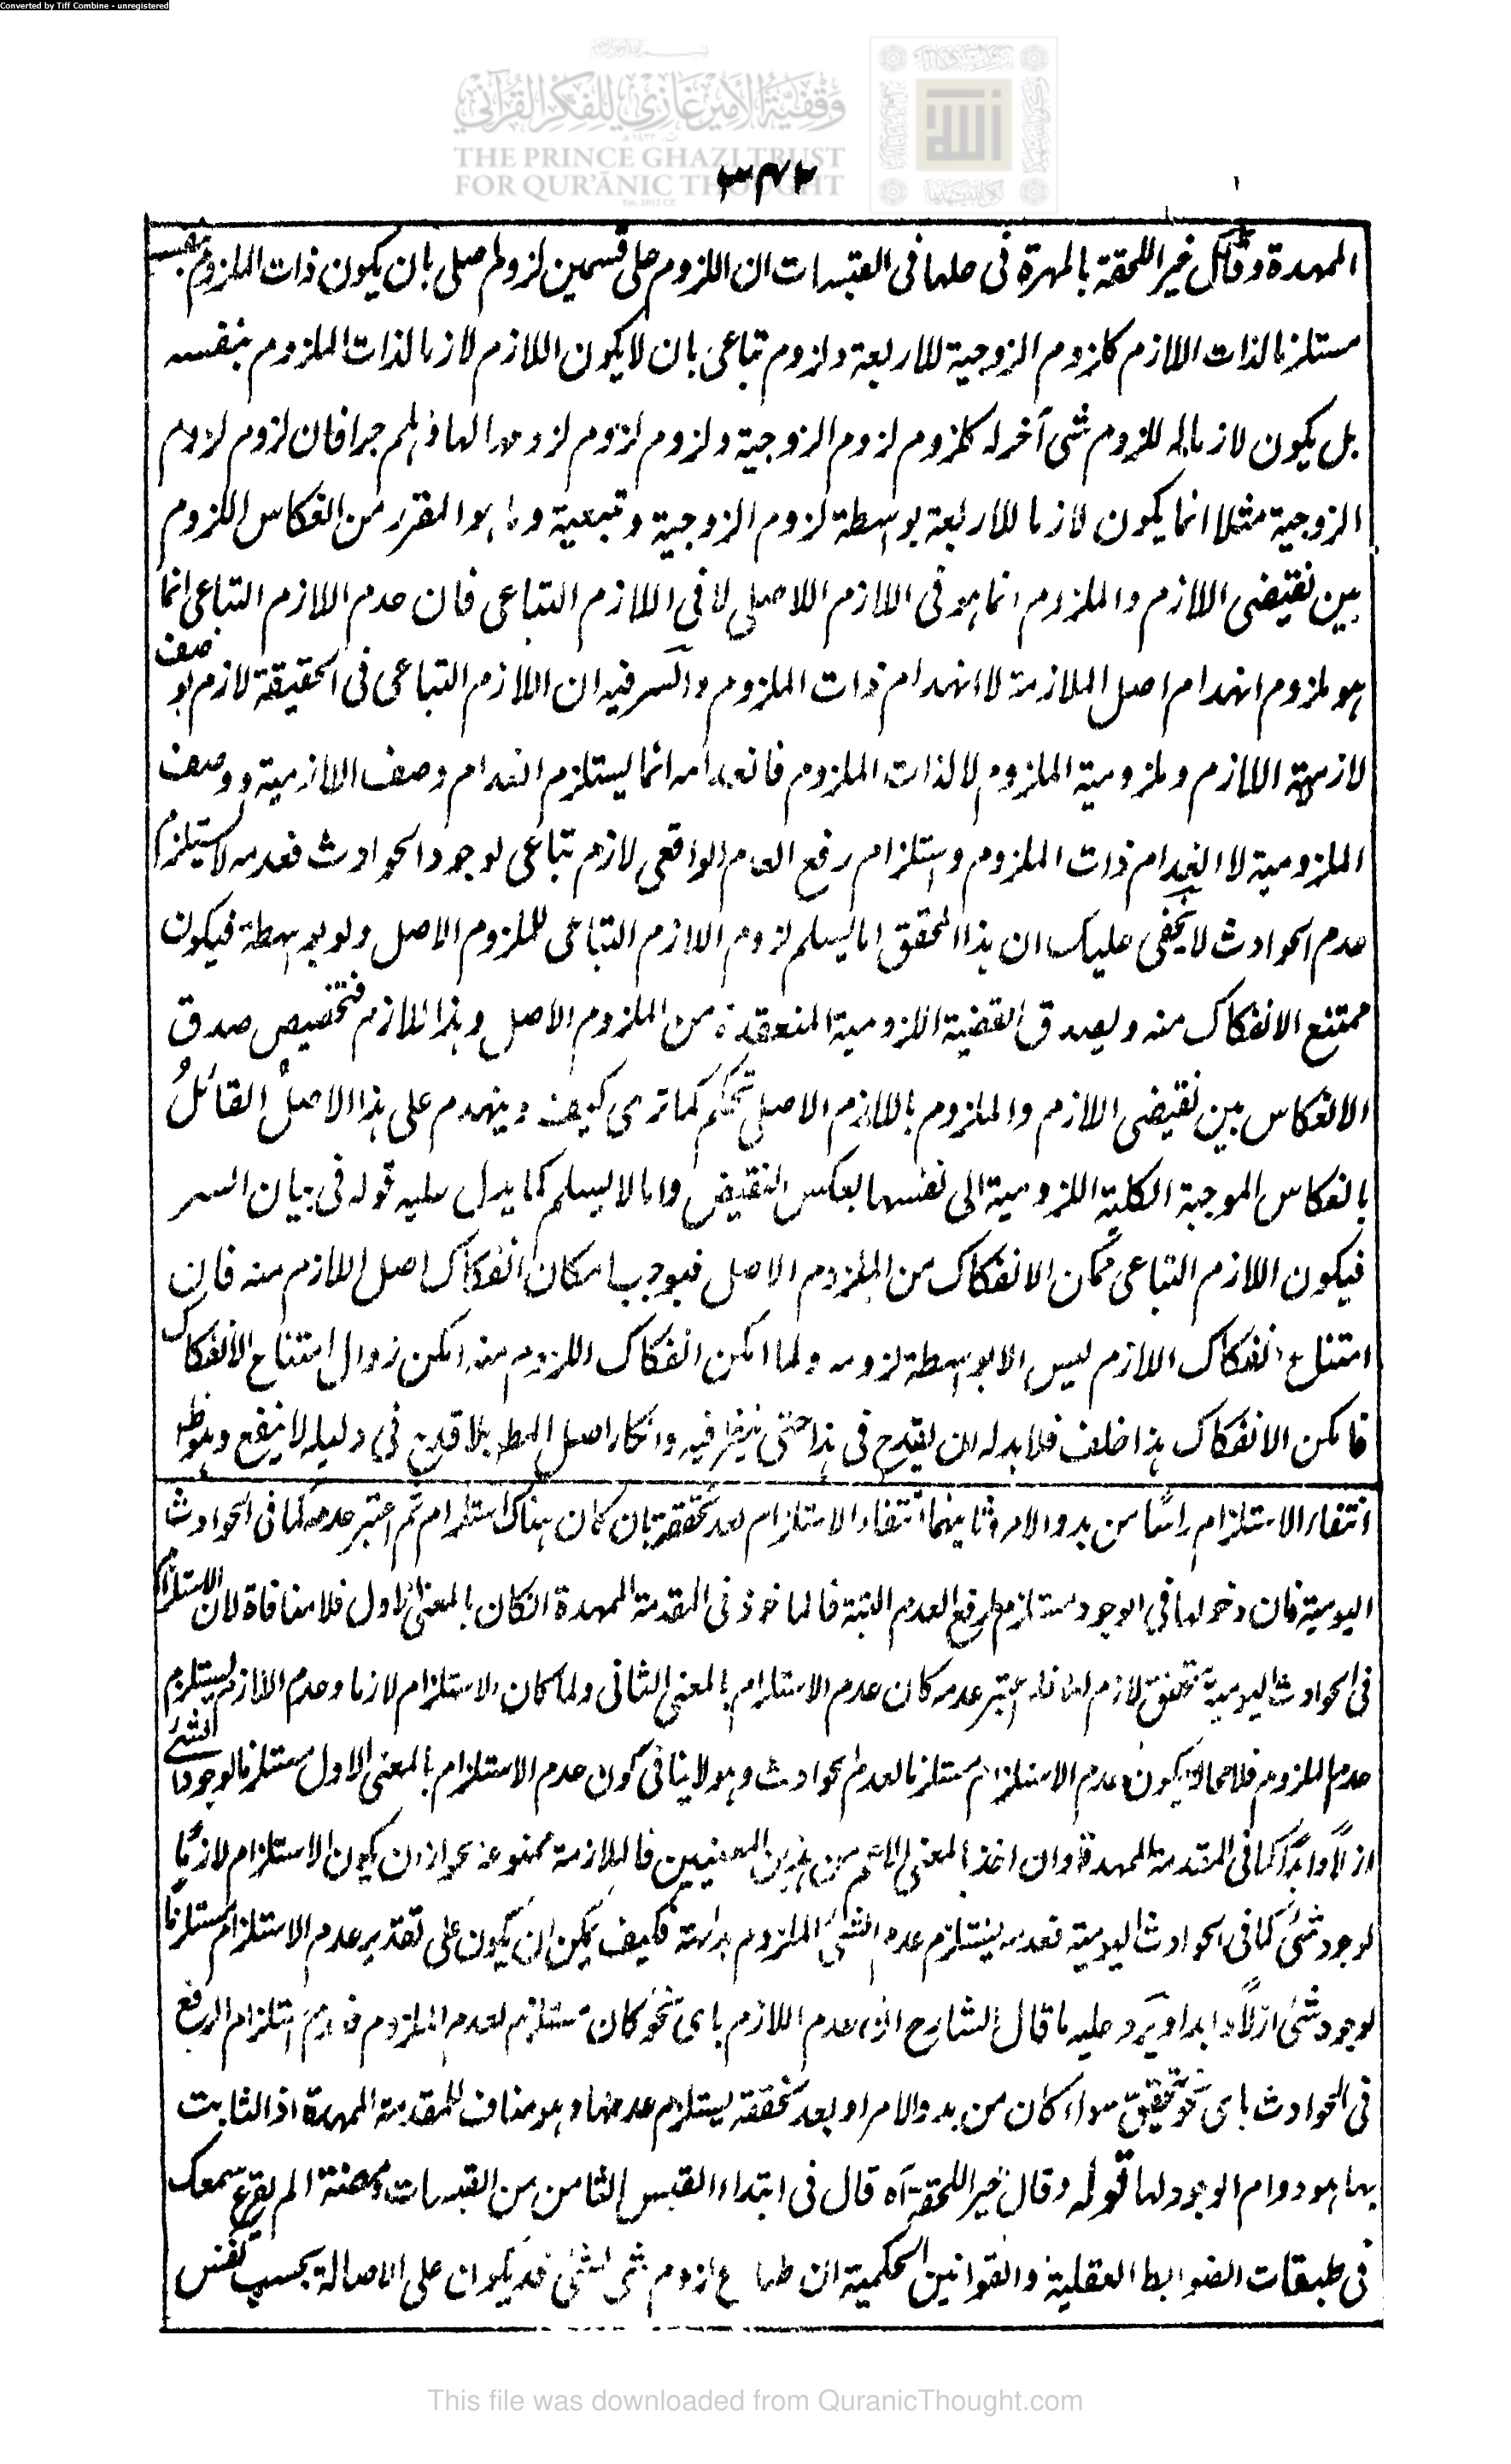 Converted by Tiff Combine - unregistered
وقفية الأمير غازي للفكر القرآني
THE PRINCE GHAZI TRUST
FOR QUR'ĀNIC THOUGHT
الله
٣٤٢
الممهدة وقال خير اللحقة بالمهرة فى حلها فى القبسات ان اللزوم على قسمين لزوم اصلى بان يكون ذات الملزوم بنفسه
مستلزما لذات اللازم كلزوم الزوجية للاربعة ولزوم تباعى بان لا يكون اللازم لازما لذات الملزوم بنفسه
بل يكون لازما له للزوم شى آخر له كلزوم لزوم الزوجية ولزوم لزوم لزومها لها وهلم جرا فان لزوم لزوم
الزوجية مثلا انما يكون لازما للاربعة بواسطة لزوم الزوجية وتبعية وما هو المقرر من انعكاس اللزوم
بين نقيضى اللازم والملزوم انما هو فى اللازم الاصلى لا فى اللازم التباعى فان عدم اللازم التباعى انما
هو ملزوم انهدام اصل الملازمة لا انهدام ذات الملزوم والسر فيه ان اللازم التباعى فى الحقيقة لازم لوصف
لازمية اللازم وملزومية الملزوم لا لذات الملزوم فانعدامه انما يستلزم انعدام وصف اللازمية ووصف
الملزومية لا انعدام ذات الملزوم واستلزام رفع العدم الواقعى لازم تباعى لوجود الحوادث فعدمه لا يستلزم
عدم الحوادث لا يخفى عليك ان هذا المحقق اما يسلم لزوم اللازم التباعى للملزوم الاصل ولو بواسطة فيكون
ممتنع الانفكاك منه ويصدق القضية اللزومية المنعقدة من الملزوم الاصل وهذا اللازم فتخصيص صدق
الانعكاس بين نقيضى اللازم والملزوم باللازم الاصلى تحكم كما ترى كيف وينهدم على هذا الاصل القائل
بانعكاس الموجبة الكلية اللزومية الى نفسها بعكس النقيض واما لا يسلم كما يدل عليه قوله فى بيان السر
فيكون اللازم التباعى ممكن الانفكاك من الملزوم الاصل فيوجب امكان انفكاك اصل اللازم منه فان
امتناع انفكاك اللازم ليس الا بواسطة لزومه ولما امكن انفكاك اللزوم منه امكن زوال امتناع الانفكاك
فامكن الانفكاك هذا خلف فلا بد له ان يقدح فى هذا حتى ينظر فيه وانكار اصل المط بلا قدح فى دليله لا ينفع وهو ظ
انتفاء الاستلزام راسًا من بدو الامر وثانيهما انتفاء الاستلزام بعد تحققه بان كان هناك استلزام ثم اعتبر عدمه كما فى الحوادث
اليومية فان دخولها فى الوجود مستلزم لرفع العدم البتة فالماخوذ فى المقدمة الممهدة انكان بالمعنى الاول فلا منافاة لان الاستلزام
فى الحوادث اليومية تحقق لازم لها فاذا اعتبر عدمه كان عدم الاستلزام بالمعنى الثانى ولما كان الاستلزام لازما وعدم اللازم يستلزم
عدم الملزوم فلا محالة يكون عدم الاستلزام مستلزما لعدم الحوادث وهو لا ينافى كون عدم الاستلزام بالمعنى الاول مستلزما لوجود الشئ
ازلًا وابدًا كما فى المقدمة الممهدة وان اخذ بالمعنى الاعم من هذين المعنيين فالملازمة ممنوعة لجواز ان يكون الاستلزام لازمًا
لوجود شئ كما فى الحوادث اليومية فعدمه يستلزم عدم الشئ الملزوم بداهة فكيف يمكن ان يكون على تقدير عدم الاستلزام مستلزمًا
لوجود شئ ازلًا وابدا ويرد عليه ما قال الشارح ان عدم اللازم باى نحو كان مستلزم لعدم الملزوم فعدم استلزام الرفع
فى الحوادث باى نحو تحقق سواء كان من بدو الامر او بعد تحققه يستلزم عدمها وهو مناف للمقدمة الممهدة اذ الثابت
بها هو دوام الوجود لها قوله وقال خير اللحقة آه قال فى ابتداء القبس الثامن من القبسات ومضة الم يقرع سمعك
فى طبقات الضوابط العقلية والقوانين الحكمية ان طباع لزوم شئ لشئ قد يكون على الاصالة بحسب نفس
This file was downloaded from QuranicThought.com